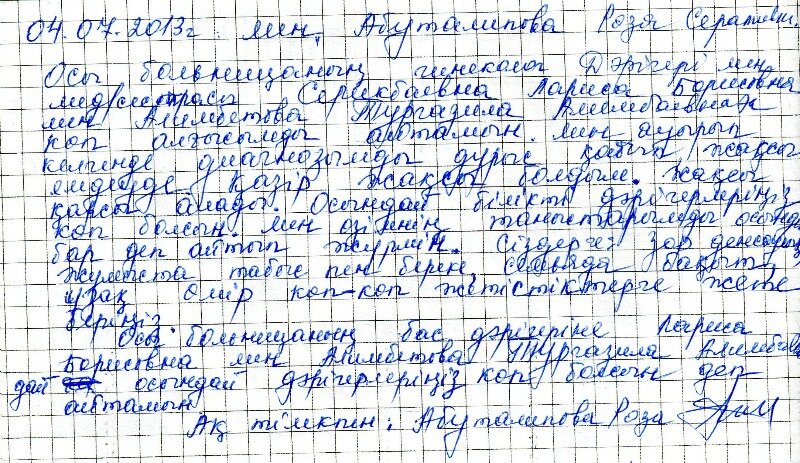 04.07.2013г. мен, Абуталипова Роза Серативн.
Осы больницаның гинеколог Дәрігері мен
медсестрасы Серикбаевна Лариса Борисовна
мен Алимбетова Тургазила Алимбаевнаға
көп алғысымды айтамын. мен ауырып
келгенде диагнозымды дұрыс қойып жақсы
емдеуде Қазір жақсы болдым. жақсы
қарсы алады. Осындай білікті дәрігерлеріңіз
көп болсын. мен өзімнің таныстарымды осында
бар деп айтып жүрмін. Сіздерге зор денсаулық
жұмыста табыс пен береке, семьяда бақыт,
ұзақ өмір көп-көп жетістіктерге жете
беріңіз.
Осы больницаның бас дәрігеріне Лариса
Борисовна мен Алимбетова Тургазила Алимбаев
дай осындай дәрігерлеріңіз көп болсын деп
айтамын
Ақ тілекпен: Абуталипова Роза